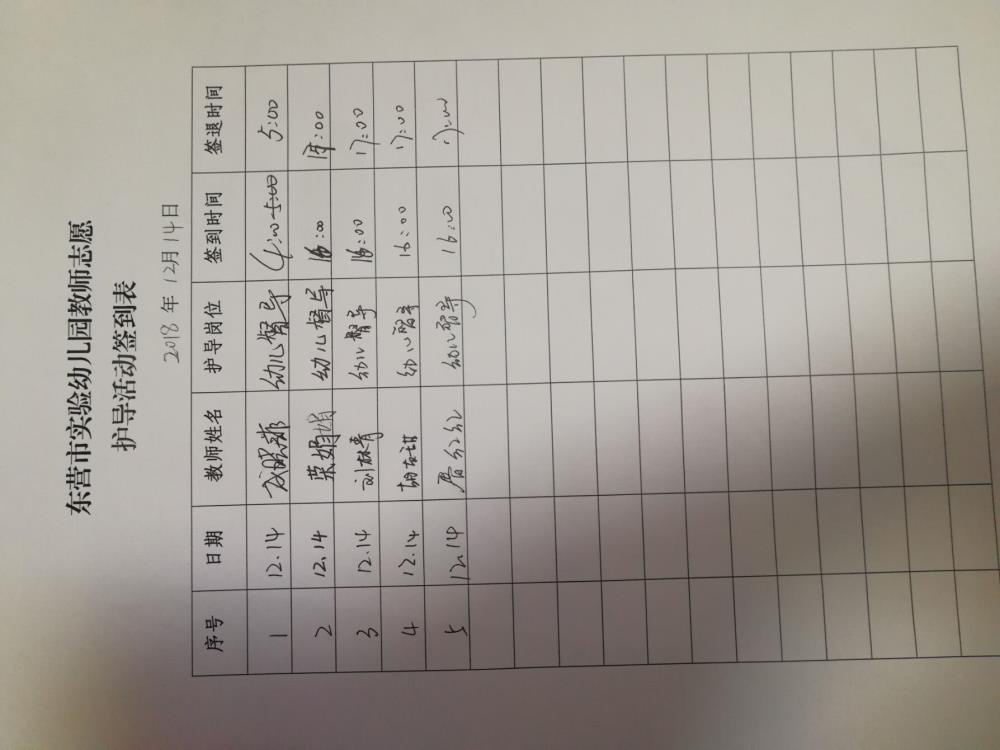 东营市实验幼儿园教师志愿
护导活动签到表
2018年12月14日
序号 日期 教师姓名 护导岗位 签到时间 签退时间
1 12.14 幼儿督导 4:00-5:00 5:00
2 12.14 荣娟娟 幼儿督导 16:00 17:00
3 12.14 刘林青 幼儿督导 16:00 17:00
4 12.14 幼儿督导 16:00 17:00
5 12.14 幼儿督导 16:00 17:00